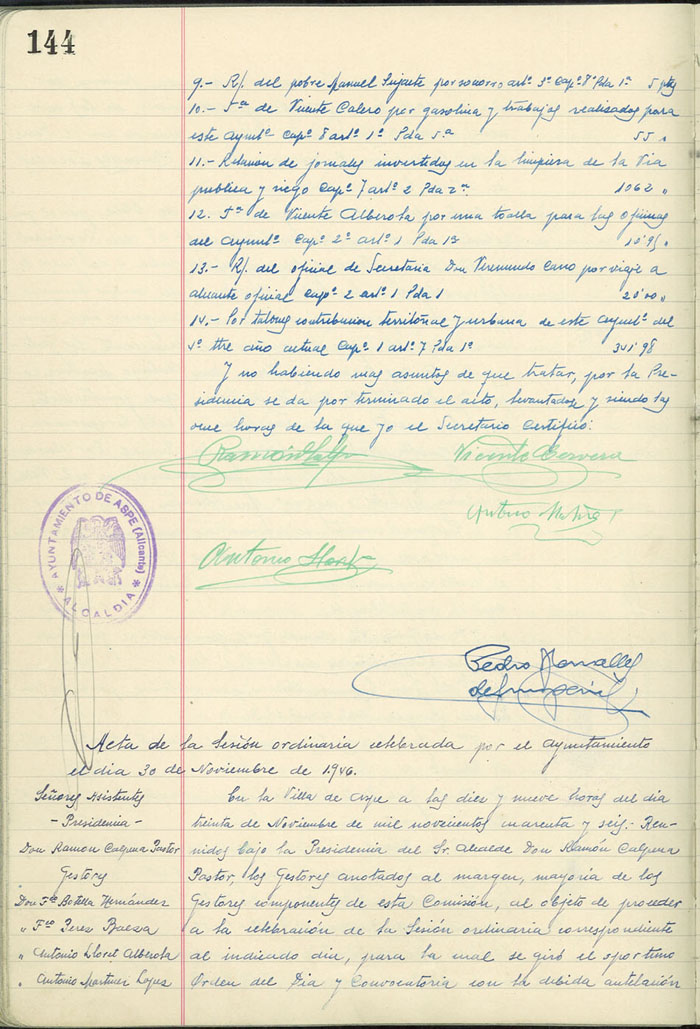 144
9.- R/. del pobre Manuel por socorro artº 3º Capº 8º Pda 1ª 5 ptas
10.- Fra de Vicente Calero por gasolina y trabajos realizados para
este ayuntº capº 8 artº 1º Pda 5ª 55 "
11.- Relación de jornales invertidos en la limpieza de la Via
publica y riego Capº 7 artº 2 Pda 2ª 1062 "
12. Fra de Vicente Alberola por una toalla para las oficinas
del ayuntº Capº 2º artº 1 Pda 1ª 10'95 "
13.- R/. del oficial de Secretaria Don Veremundo Cano por viaje a
alicante oficial capº 2 artº 1 Pda 1 20'00 "
14.- Por talones contribucion territorial y urbana de este ayuntº del
ttre año actual Capº 1 artº 7 Pda 1ª 341'98
Y no habiendo mas asuntos de que tratar, por la Pre-
sidencia se da por terminado el acto, levantadose y siendo las
once horas de la que yo el Secretario Certifico:
Ramón Vicente Cervera
AYUNTAMIENTO DE ASPE (Alicante)
* ALCALDIA *
Arturo
Antonio
Pedro
Acta de la Sesión ordinaria celebrada por el ayuntamiento
el dia 30 de Noviembre de 1946.
Señores Asistentes
- Presidencia -
Don Ramon Calpena Pastor
Gestores
Don Fco Botella Hernández
" Fco Perez Baeza
" Antonio Lloret Alberola
" Antonio Martinez Lopez
En la Villa de aspe a las diez y nueve horas del dia
treinta de Noviembre de mil novecientos cuarenta y seis.- Reu-
nidos bajo la Presidencia del Sr. Alcalde Don Ramón Calpena
Pastor, los Gestores anotados al margen, mayoria de los
Gestores componentes de esta Comisión, al objeto de proceder
a la celebración de la Sesión ordinaria correspondiente
al indicado dia, para la cual se giró el oportuno
Orden del Dia y Convocatoria con la debida antelación